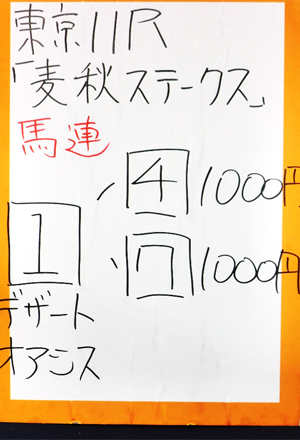 東京11R
「麦秋ステークス」
馬連
4 1000円
1
7 1000円
デザート
オアシス